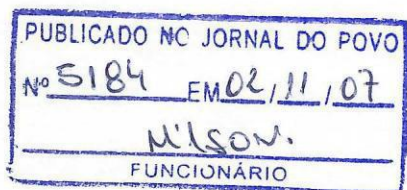 PUBLICADO NO JORNAL DO POVO
Nº 5184 EM 02 / 11 / 07
Nilson.
FUNCIONÁRIO